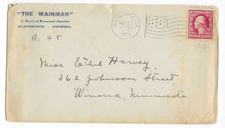 "THE WAINMAN"
A Hotel of Personal Service
BAINBRIDGE, GEORGIA
R. 48
Miss Ethel Harvey,
362 Johnson Street
Winona, Minnesota